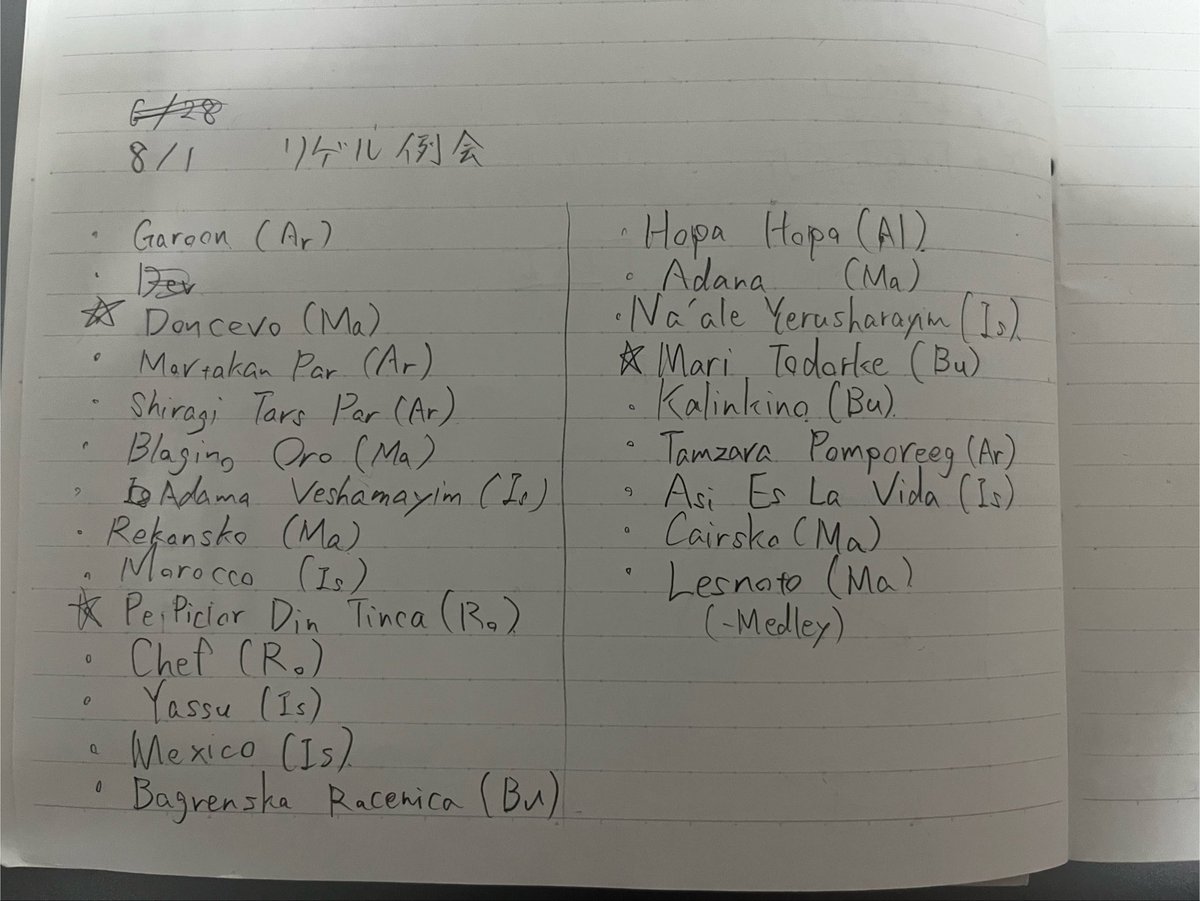 6/28
8/1 リゲル例会
・Garoon (Ar)
・Dev
☆ Doncevo (Ma)
・Martakan Par (Ar)
・Shiragi Tars Par (Ar)
・Blagino Oro (Ma)
・Adama Veshamayim (Is)
・Rekansko (Ma)
・Marocco (Is)
☆ Pe Picior Din Tinca (Ro)
・Chef (Ro)
・Yassu (Is)
・Mexico (Is)
・Bagrenska Racenica (Bu)
・Hopa Hopa (Al)
・Adana (Ma)
・Na'ale Yerusharayim (Is)
☆ Mari Todorke (Bu)
・Kalinkino (Bu)
・Tamzara Pomporeeg (Ar)
・Asi Es La Vida (Is)
・Cairsko (Ma)
・Lesnoto (Ma)
(-Medley)